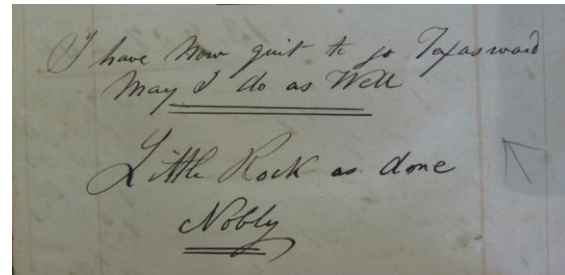 I have now quit to go Texasward
May I do as Well
Little Rock as done
Nobly